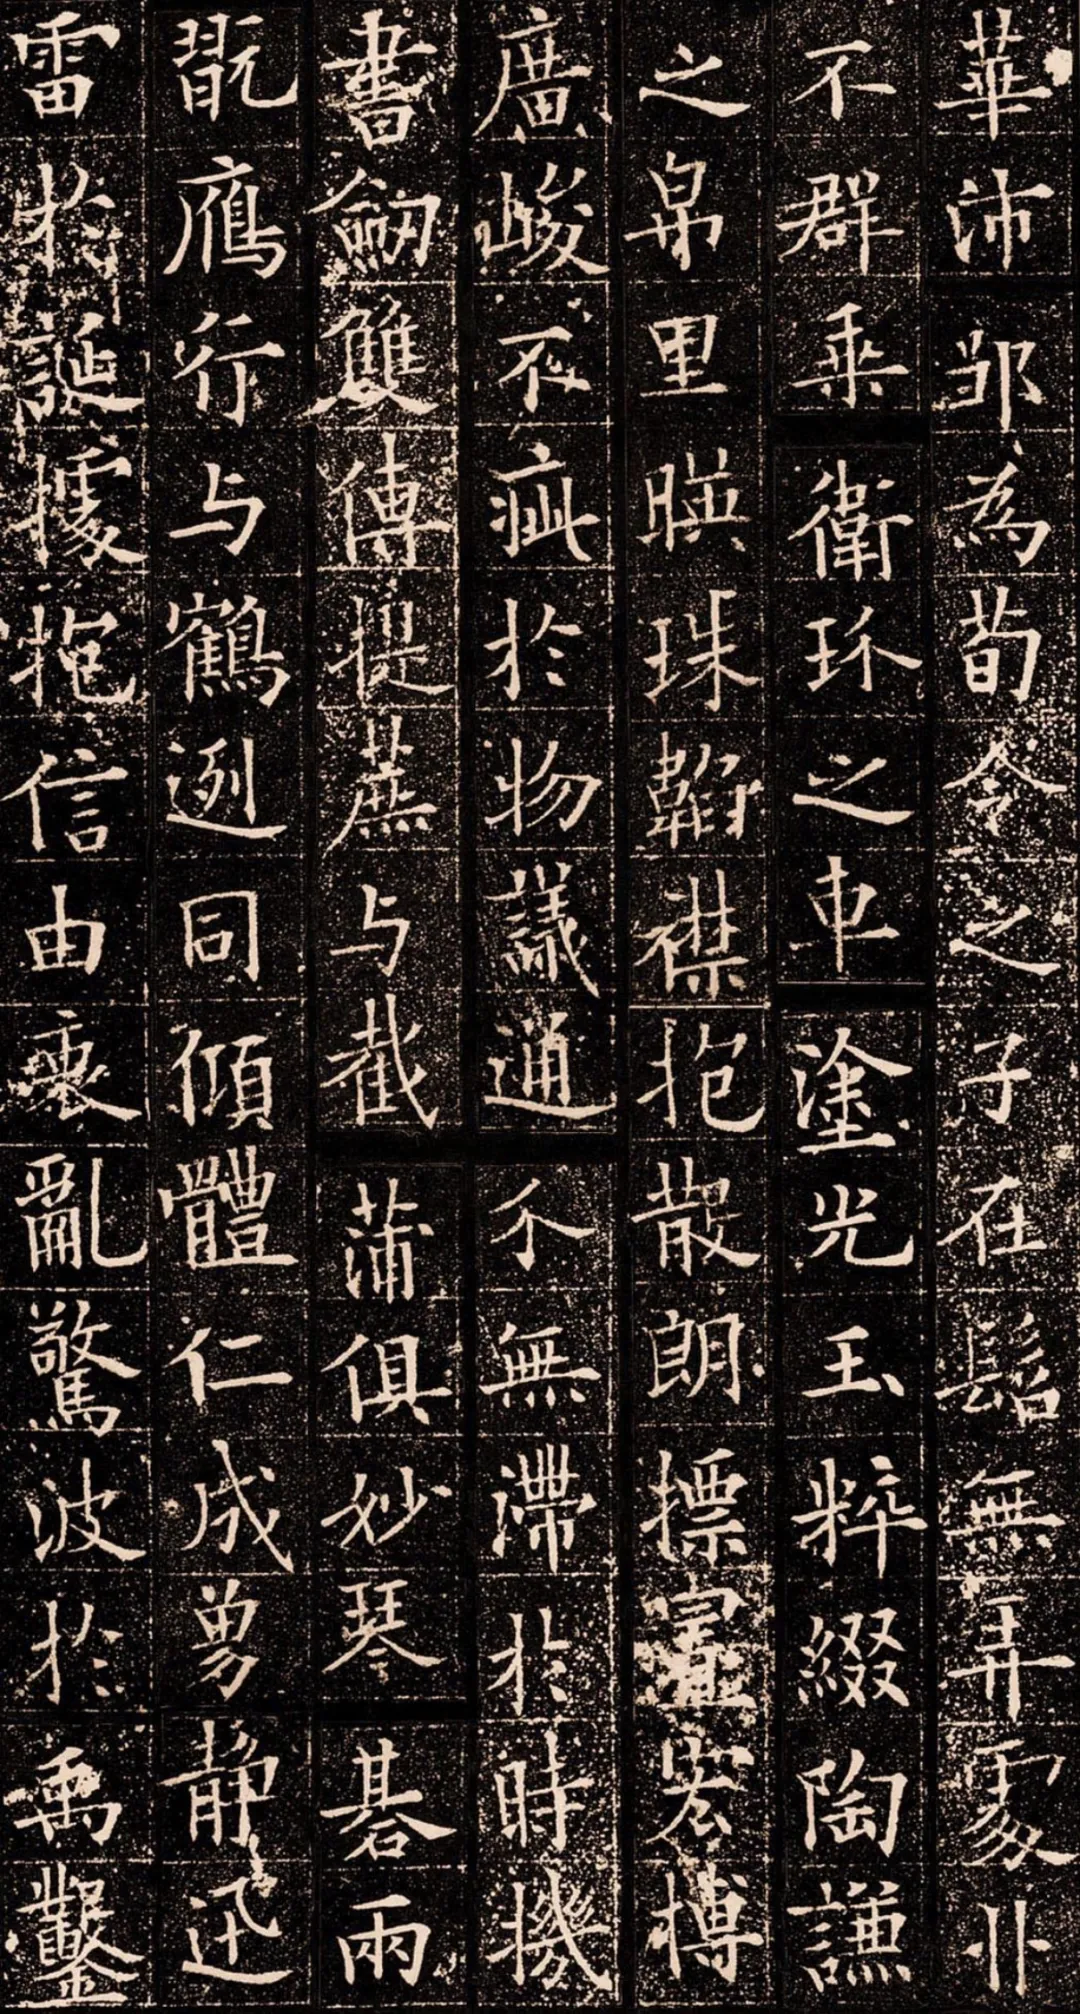 華沛鄒為荀令之子在髫無弄處丱
不群乘衛玠之車塗光玉粹綴陶謙
之帛里暎珠韜襟抱散朗摽宏博
廣峻不疵於物議通介無滯於時機
書劒雙傳提蔗与截蒲俱妙琴碁兩
翫鴈行与鶴迾同傾體仁成勇靜迅
雷於誕據抱信由衷亂驚波於禹鑿